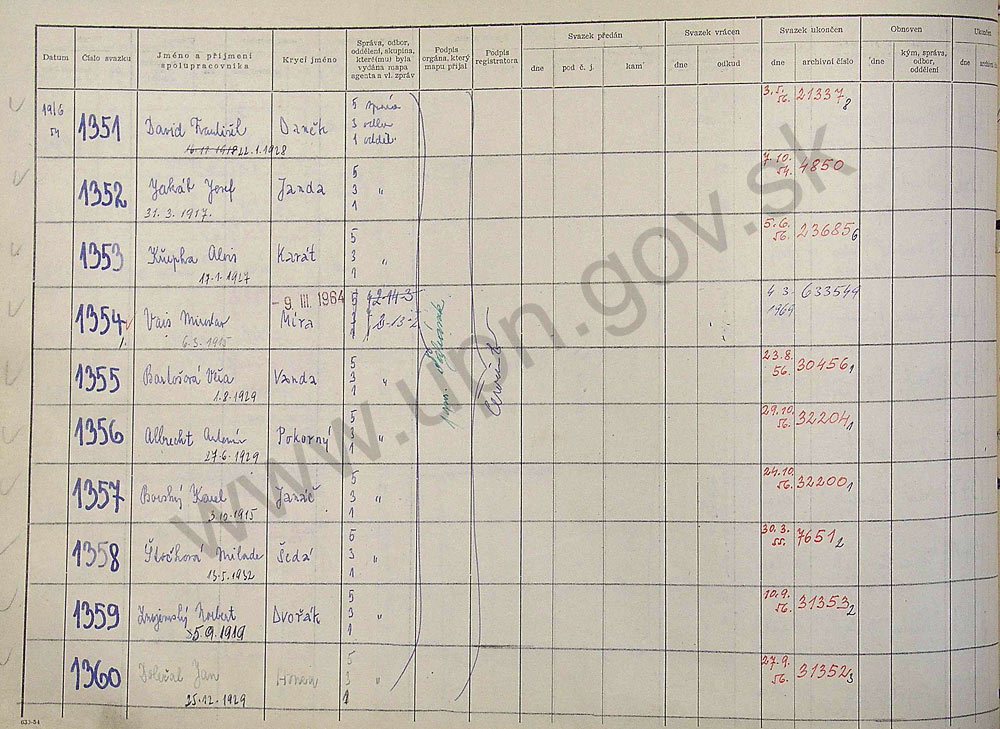 Datum
Číslo svazku
Jméno a příjmení spolupracovníka
Krycí jméno
Správa, odbor, oddělení, skupina, které(mu) byla vydána mapa agenta a vl. zpráv
Podpis orgána, který mapu přijal
Podpis registratora
Svazek předán
dne pod č. j. kam
Svazek vrácen
dne odkud
Svazek ukončen
dne archivní číslo
Obnoven
dne kým, správa, odbor, oddělení
dne
19/6
54
1351 David František Daněk 5 správa 3.5. 56. 21337 8
3 odbor
16.11.1918 22.1.1928 1 odděl.
1352 Jakáb Josef Janda 5 3 " 1 7.10. 54. 4850
31. 3. 1917.
1353 Křupka Alois Karát 5 3 " 1 5.6. 56. 23685 6
17.1.1927
- 9. III. 1964
1354 Vais Miroslav Míra 4-3- 1969 633549
6.3.1915
1355 Bartošová Věra Vanda 5 3 " 1 23.8. 56. 30456 1
1.8.1929
1356 Albrecht Antonín Pokorný 5 3 " 1 29.10. 56. 32204 1
27-6-1929
1357 Karel 5 3 " 1 24.10. 56. 32200 1
3.10.1915
1358 Šedá 5 3 " 1 30.3. 55. 7651 2
13.5.1932
1359 Znojemský Norbert Dvořák 5 3 " 1 10.9. 56. 31353 2
5.9.1919
1360 Doležal Jan 5 3 " 1 27.9. 56. 31352 3
25.12.1929
www.upn.gov.sk